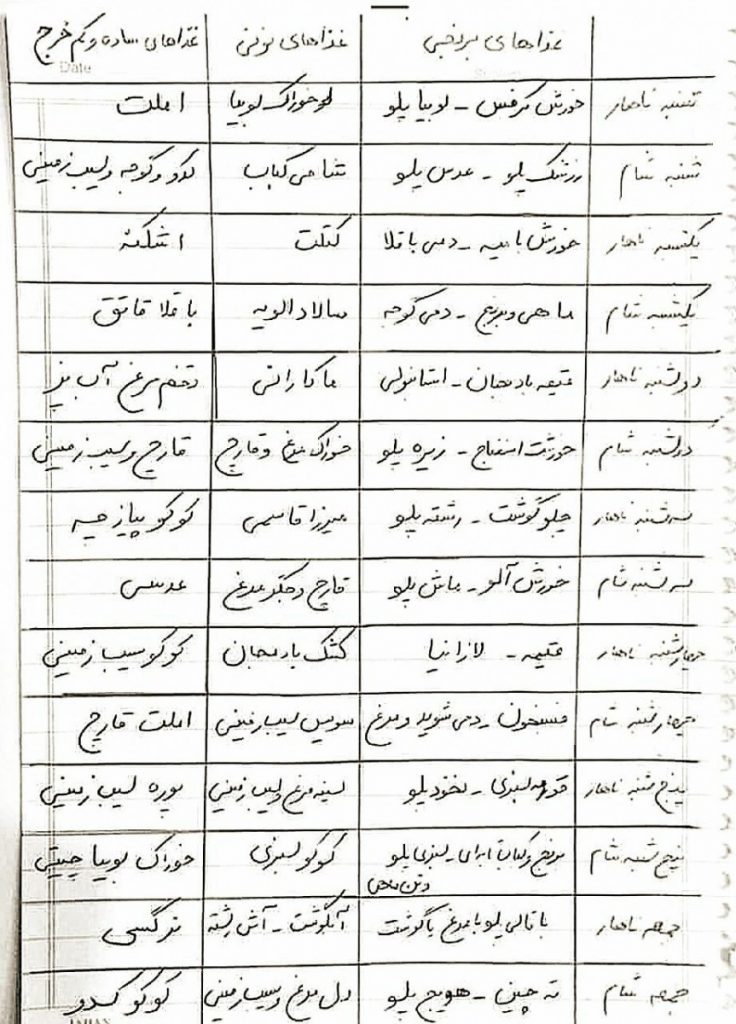 غذاهای برنجی غذاهای نونی غذاهای ساده و کم خرج
Date
شنبه ناهار خورش کرفس - لوبیا پلو خوراک لوبیا املت
شنبه شام زرشک پلو - عدس پلو شامی کباب کدو و گوجه و سیب زمینی
یکشنبه ناهار خورش بامیه - دمی باقلا کتلت اشکنه
یکشنبه شام ماهی و برنج - دمی گوجه سالاد الویه باقلا قاتق
دوشنبه ناهار قیمه بادمجان - استانبولی ماکارانی تخم مرغ آب پز
دوشنبه شام خورشت اسفناج - زیره پلو خوراک مرغ و قارچ قارچ و سیب زمینی
سه شنبه ناهار چلو گوشت - رشته پلو میرزا قاسمی کوکو پیازچه
سه شنبه شام خورش آلو - ماش پلو قارچ و جگر مرغ عدسی
چهارشنبه ناهار قیمه - لازانیا کشک بادمجان کوکو سیب زمینی
چهارشنبه شام فسنجون - دمی شوید و مرغ سوسیس سیب زمینی املت قارچ
پنج شنبه ناهار قورمه سبزی - نخود پلو سینه مرغ و سیب زمینی پوره سیب زمینی
پنج شنبه شام برنج و کباب ایرانی - سبزی پلو کوکو سبزی خوراک لوبیا چیتی
و تن ماهی
جمعه ناهار باقالی پلو با مرغ یا گوشت آبگوشت - آش رشته نرگسی
جمعه شام ته چین - هویج پلو دل مرغ و سیب زمینی کوکو کدو